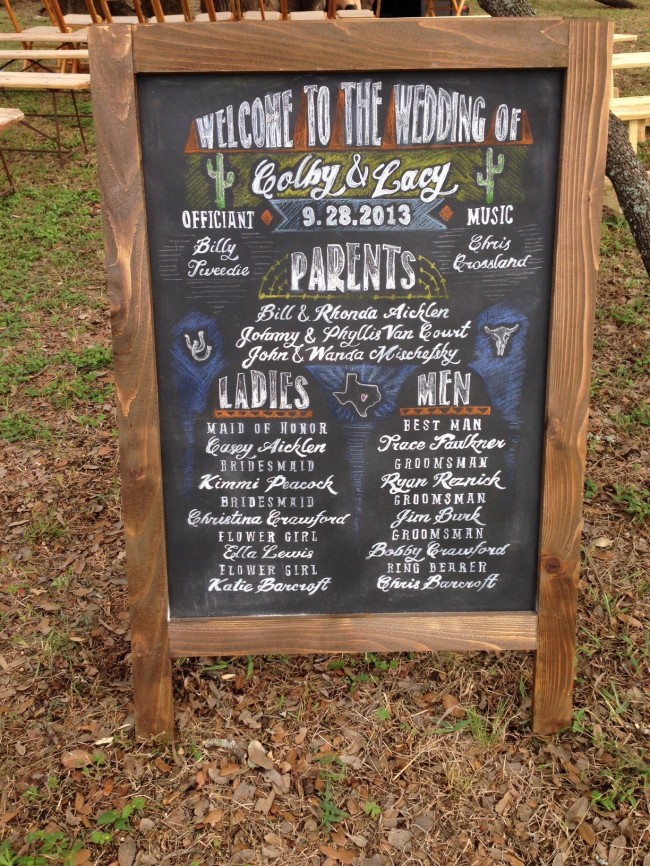 WELCOME TO THE WEDDING OF
Colby & Lacy
OFFICIANT 9.28.2013 MUSIC
Billy Tweedie
Chris Crossland
PARENTS
Bill & Rhonda Aicklen
Johnny & Phyllis Van Court
John & Wanda Mischefsky
LADIES
MAID OF HONOR
Casey Aicklen
BRIDESMAID
Kimmi Peacock
BRIDESMAID
Christina Crawford
FLOWER GIRL
Ella Lewis
FLOWER GIRL
Katie Barcroft
MEN
BEST MAN
Trace Faulkner
GROOMSMAN
Ryan Reznick
GROOMSMAN
Jim Burk
GROOMSMAN
Bobby Crawford
RING BEARER
Chris Barcroft